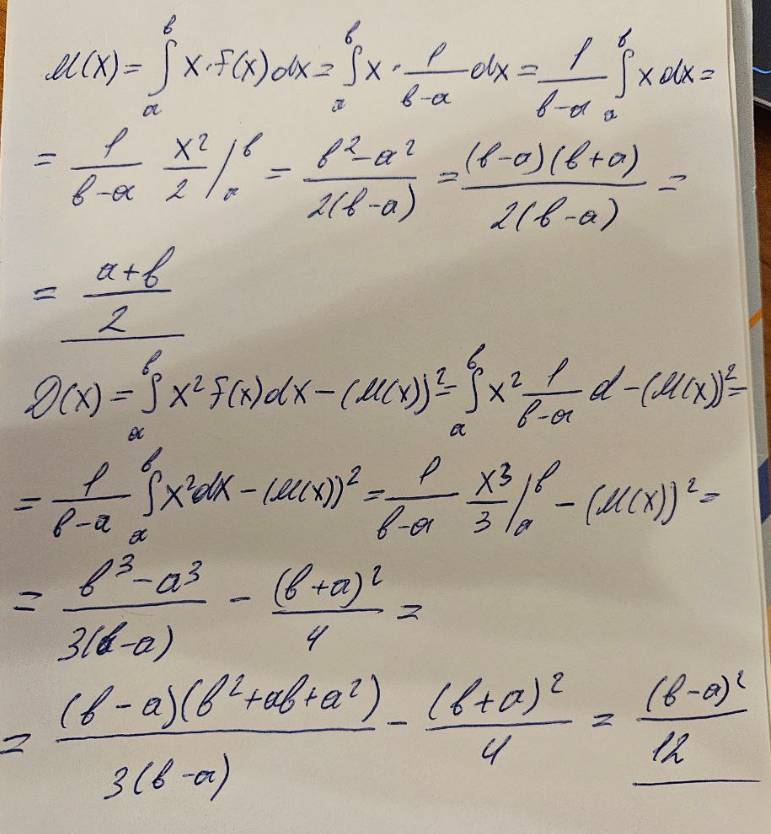 M(X) = ∫ₐᵇ x·f(x)dx = ∫ₐᵇ x · 1/(b-a) dx = 1/(b-a) ∫ₐᵇ x dx =
= 1/(b-a) x²/2 |ₐᵇ = (b²-a²)/(2(b-a)) = ((b-a)(b+a))/(2(b-a)) =
= (a+b)/2
D(X) = ∫ₐᵇ x² f(x)dx - (M(X))² = ∫ₐᵇ x² 1/(b-a) d - (M(X))² =
= 1/(b-a) ∫ₐᵇ x²dx - (M(X))² = 1/(b-a) x³/3 |ₐᵇ - (M(X))² =
= (b³-a³)/(3(b-a)) - (b+a)²/4 =
= ((b-a)(b²+ab+a²))/(3(b-a)) - (b+a)²/4 = (b-a)²/12